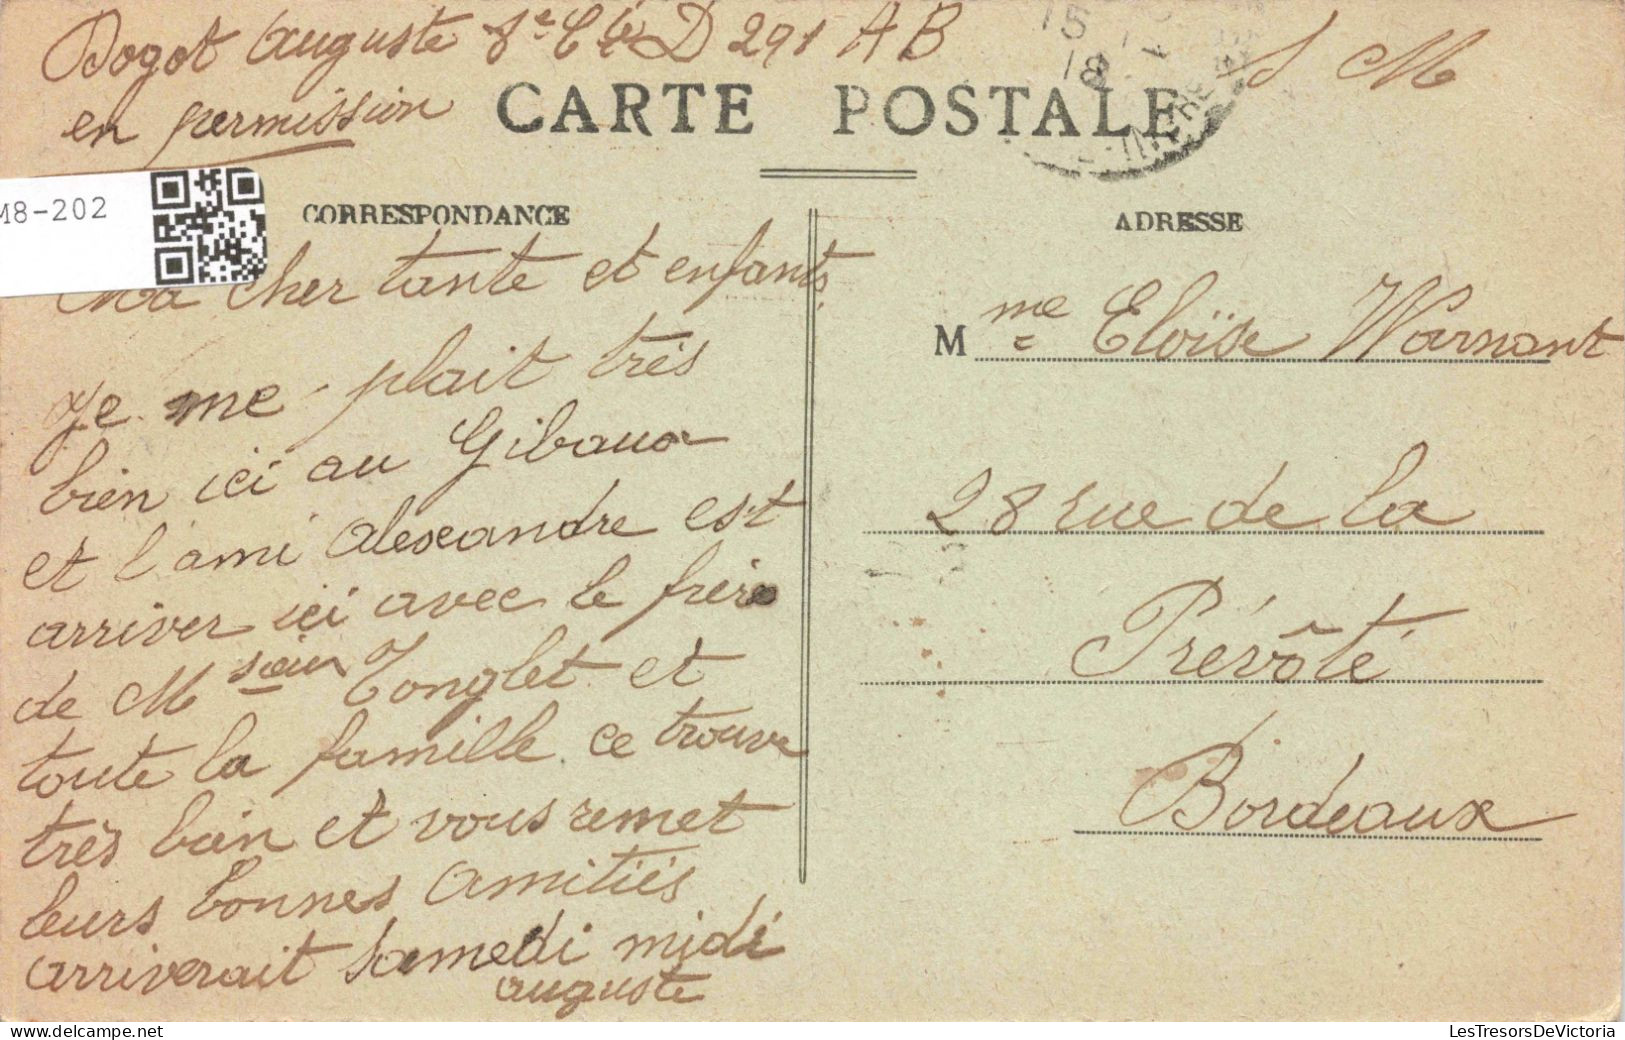 Dogot Auguste 8e Cie D 291 A B S M
en permission
CARTE POSTALE
15
18
M8-202
CORRESPONDANCE
ADRESSE
Ma cher tante et enfants,
Je me plait très
bien ici au Gibaux
et l'ami Alexandre est
arriver ici avec le frère
de M Tonglet et
toute la famille ce trouve
très bien et vous remet
leurs bonnes amitiés
arriverait Samedi midi
Auguste
Mme Eloïse Warnant
28 rue de la
Prévôté
Bordeaux
LesTresorsDeVictoria